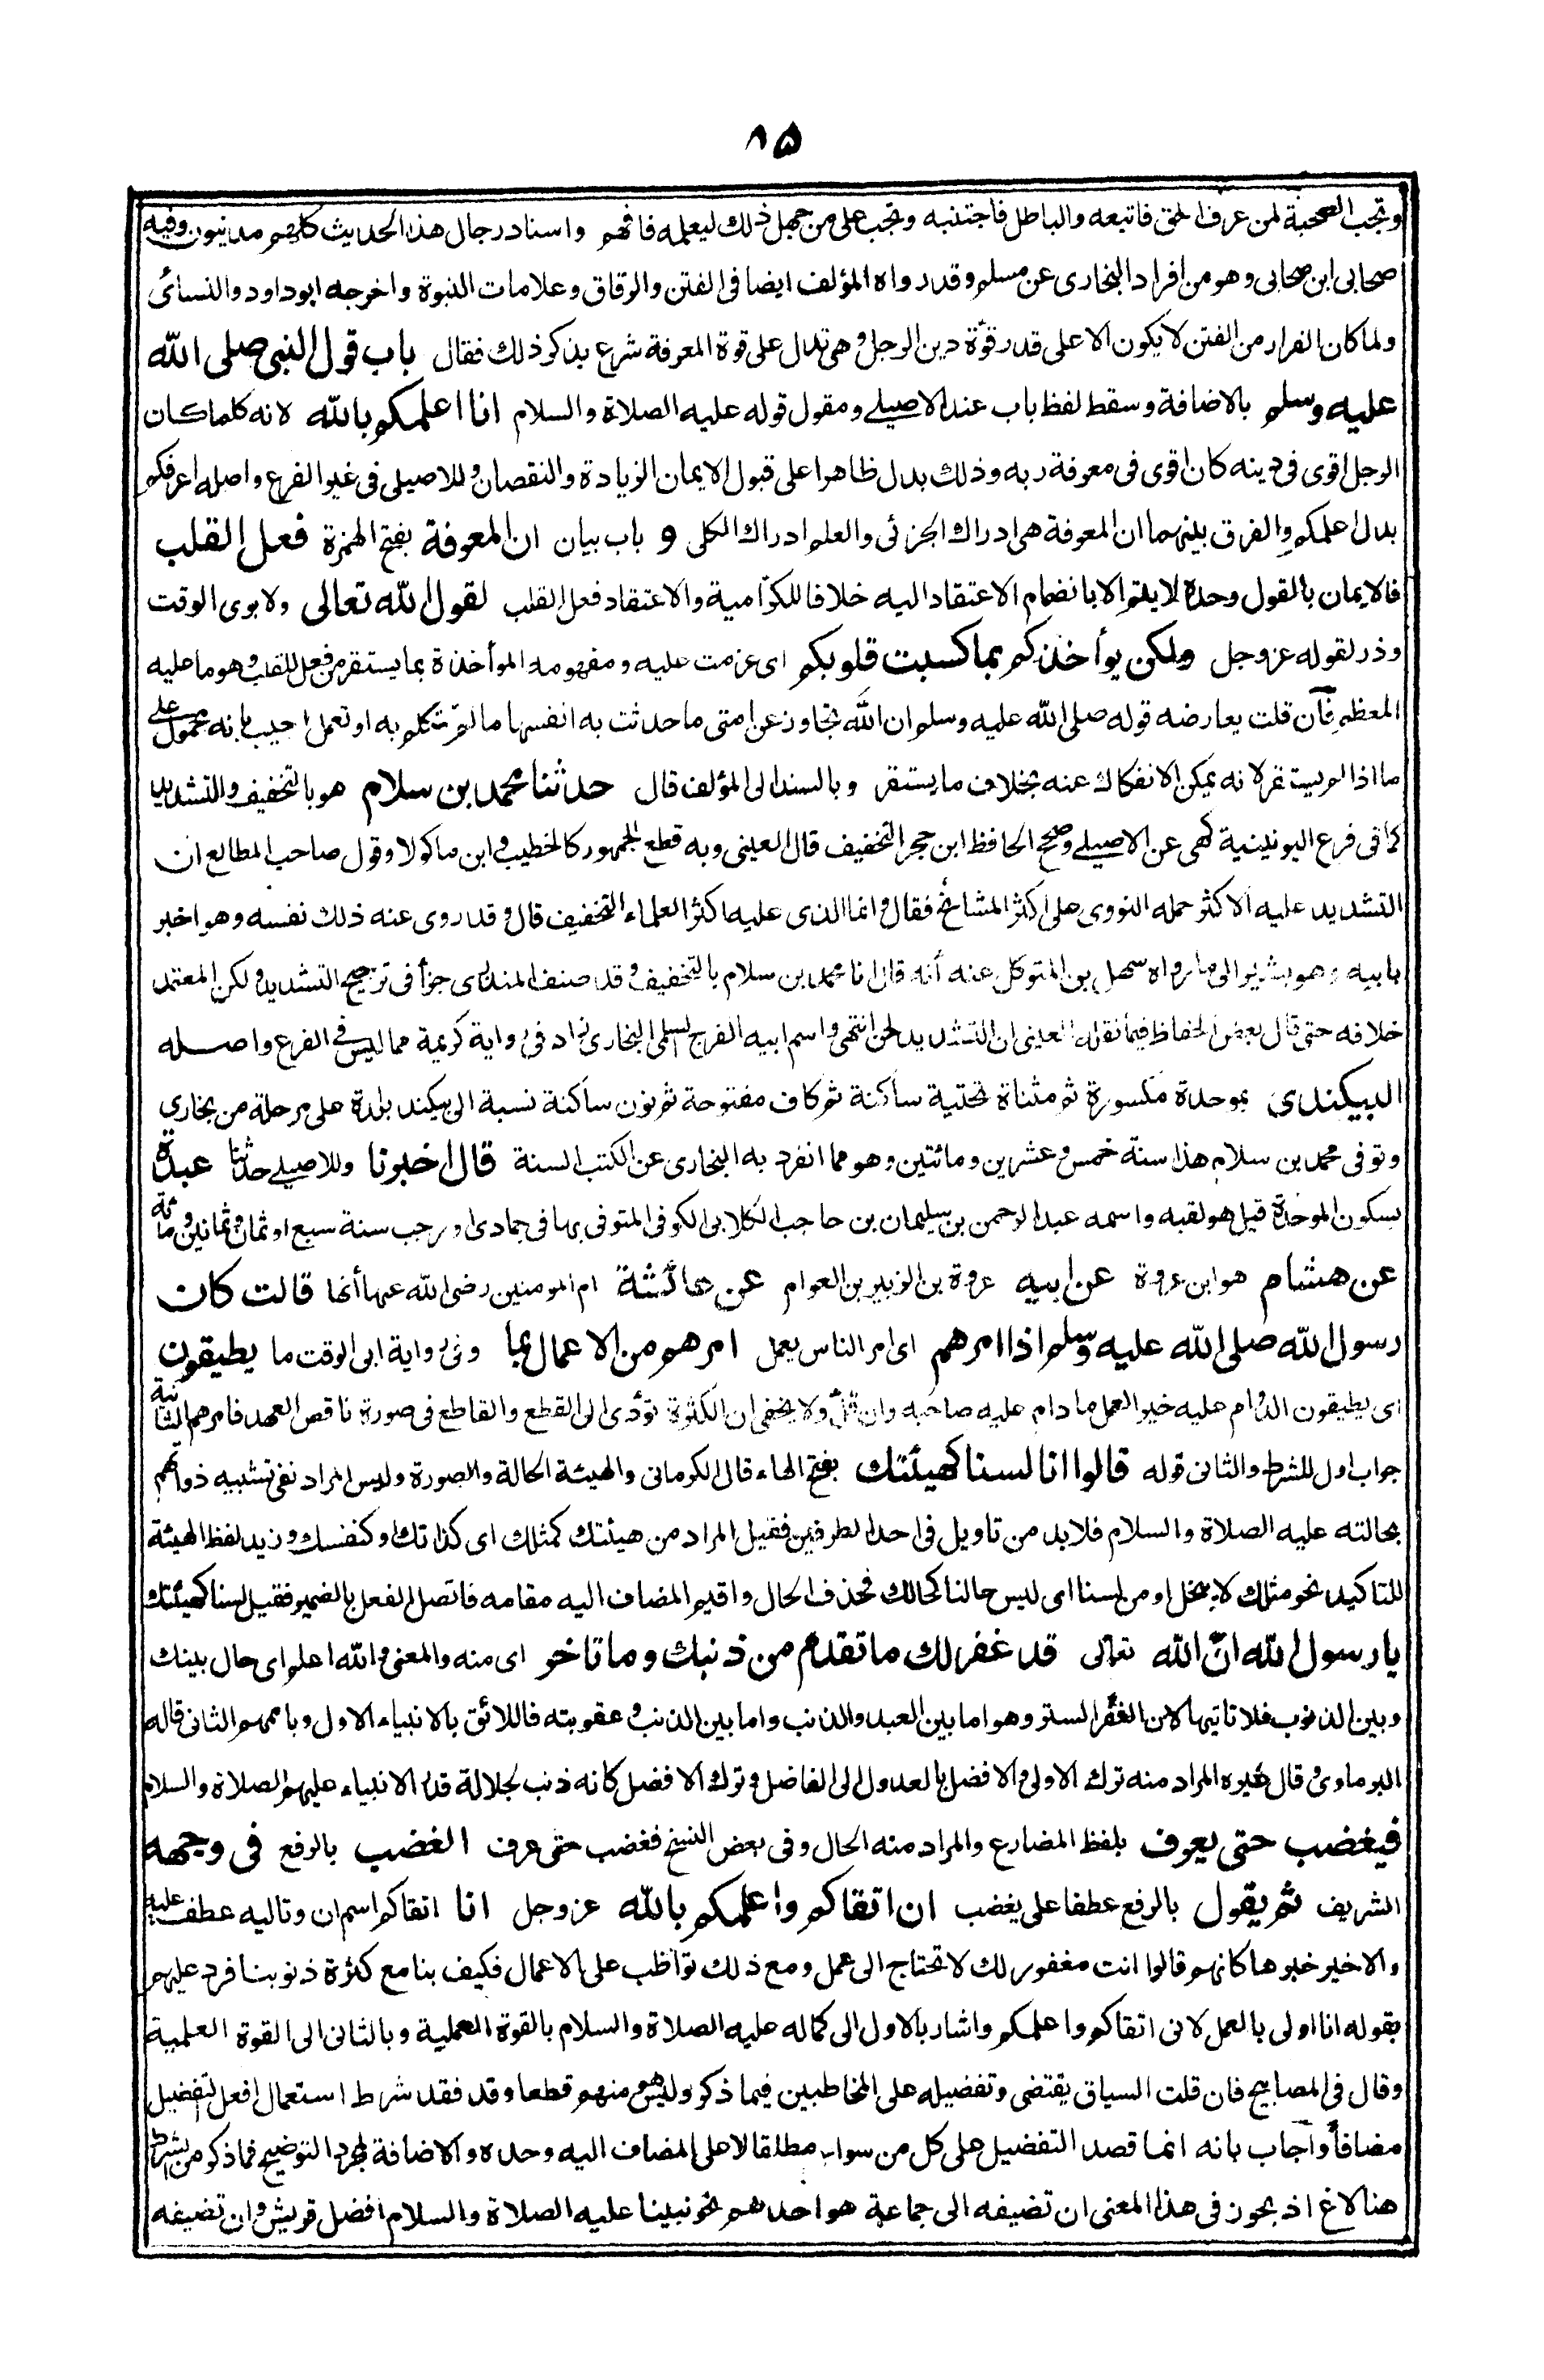 ٨٥
وتجب الصحبة لمن عرف الحق فاتبعه والباطل فاجتنبه وتجب على من جهل ذلك ليعلمه فافهم واسناد رجال هذا الحديث كلهم مدنيون وفيه
صحابى ابن صحابى وهو من افراد البخارى عن مسلم وقد رواه المؤلف ايضا فى الفتن والرقاق وعلامات النبوة واخرجه ابوداود والنسائى
ولما كان الفرار من الفتن لا يكون الا على قدر قوة دين الرجل وهى تدل على قوة المعرفة شرع يذكر ذلك فقال باب قول النبى صلى الله
عليه وسلم بالاضافة وسقط لفظ باب عند الاصيلى ومقول قوله عليه الصلاة والسلام انا اعلمكم بالله لانه كلما كان
الرجل اقوى فى دينه كان اقوى فى معرفة ربه وذلك يدل ظاهرا على قبول الايمان الزيادة والنقصان وللاصيلى فى غير الفرع واصله اعرفكم
بدل اعلمكم والفرق بينهما ان المعرفة هى ادراك الجزئى والعلم ادراك الكلى و باب بيان ان المعرفة بفتح الهمزة فعل القلب
فالايمان بالقول وحده لا يتم الا بانضمام الاعتقاد اليه خلافا للكرّامية والاعتقاد فعل القلب لقول الله تعالى ولابوى الوقت
وذر لقوله عز وجل ولكن يوأخذكم بما كسبت قلوبكم اى عزمت عليه ومفهومه المؤأخذة بما يستقر من فعل القلب وهو ما عليه
المعظم فان قلت يعارضه قوله صلى الله عليه وسلم ان الله تجاوز عن امتى ما حدثت به انفسها ما لم تتكلم به او تعمل اجيب بانه محمول على
ما اذا لم يستقر لانه يمكن الانفكاك عنه بخلاف ما يستقر وبالسند الى المؤلف قال حدثنا محمد بن سلام هو بالتخفيف والتشديد
كما فى فرع اليونينية كهى عن الاصيلى وصحح الحافظ ابن حجر التخفيف قال العينى وبه قطع الجمهور كالخطيب وابن ماكولا وقول صاحب المطالع ان
التشديد عليه الاكثر حمله النووى على اكثر المشائخ فقال وانما الذى عليه اكثر العلماء التخفيف قال وقد روى عنه ذلك نفسه وهو اخبر
بابيه وهو يشير الى ما رواه سهل بن المتوكل عنه أنه قال انا محمد بن سلام بالتخفيف وقد صنف المنذرى جزأ فى ترجيح التشديد ولكن المعتمد
خلافه حتى قال بعض الحفاظ فيما نقله العينى ان التشديد لحن انتهى واسم ابيه الفرج السلمى البخارى زاد فى رواية كريمة مما ليس فى الفرع واصله
البيكندى بموحدة مكسورة ثم مثناة تحتية ساكنة ثم كاف مفتوحة ثم نون ساكنة نسبة الى بيكند بلدة على مرحلة من بخارى
وتوفى محمد بن سلام هذا سنة خمس وعشرين ومائتين وهو مما انفرد به البخارى عن الكتب الستة قال اخبرنا وللاصيلى حدثنا عبدة
بسكون الموحدة قيل هو لقبه واسمه عبد الرحمن بن سليمان بن حاجب الكلابى الكوفى المتوفى بها فى جمادى او رجب سنة سبع او ثمان وثمانين ومائة
عن هشام هو ابن عروة عن ابيه عروة بن الزبير بن العوام عن عائشة ام المومنين رضى الله عنها أنها قالت كان
رسول الله صلى الله عليه وسلم اذا امرهم اى امر الناس بعمل امرهم من الاعمال بما وفى رواية ابى الوقت ما يطيقون
اى يطيقون الدوام عليه خير العمل ما دام عليه صاحبه وان قلّ ولا يخفى ان الكثرة تؤدى الى القطع والقاطع فى صورة ناقص العهد فامرهم الثانية
جواب اول للشرط والثانى قوله قالوا انا لسنا كهيئتك بفتح الهاء قال الكرمانى والهيئة الحالة والصورة وليس المراد نفى تشبيه ذواتهم
بحالته عليه الصلاة والسلام فلابد من تاويل فى احد الطرفين فقيل المراد من هيئتك كمثلك اى كذاتك او كنفسك وزيد لفظ الهيئة
للتاكيد نحو مثلك لا يبخل او من لسنا اى ليس حالنا كحالك فحذف الحال واقيم المضاف اليه مقامه فاتصل الفعل بالضمير فقيل لسنا كهيئتك
يارسول الله انّ الله تعالى قد غفر لك ما تقدم من ذنبك وما تاخر اى منه والمعنى والله اعلم اى حال بينك
وبين الذنوب فلا تاتيها لان الغفر الستر وهو اما بين العبد والذنب واما بين الذنب وعقوبته فاللائق بالانبياء الاول وباممهم الثانى قاله
البرماوى وقال غيره المراد منه ترك الاولى والافضل بالعدول الى الفاضل وترك الافضل كانه ذنب لجلالة قدر الانبياء عليهم الصلاة والسلام
فيغضب حتى يعرف بلفظ المضارع والمراد منه الحال وفى بعض النسخ فغضب حتى عرف الغضب بالرفع فى وجهه
الشريف ثم يقول بالرفع عطفا على يغضب ان اتقاكم واعلمكم بالله عز وجل انا اتقاكم اسم ان وتاليه عطف عليه
والاخير خبرها كانهم قالوا انت مغفور لك لا تحتاج الى عمل ومع ذلك تواظب على الاعمال فكيف بنا مع كثرة ذنوبنا فرد عليهم
بقوله انا اولى بالعمل لانى اتقاكم واعلمكم واشار بالاول الى كماله عليه الصلاة والسلام بالقوة العملية وبالثانى الى القوة العلمية
وقال فى المصابيح فان قلت السياق يقتضى وتفضيله على المخاطبين فيما ذكر وليس هو منهم قطعا وقد فقد شرط استعمال افعل التفضيل
مضافاً وأجاب بانه انما قصد التفضيل على كل من سواه مطلقا لا على المضاف اليه وحده والاضافة لمجرد التوضيح فما ذكر من الشرط
هنا لاغ اذ يجوز فى هذا المعنى ان تضيفه الى جماعة هو احدهم نحو نبينا عليه الصلاة والسلام افضل قريش وان تضيفه